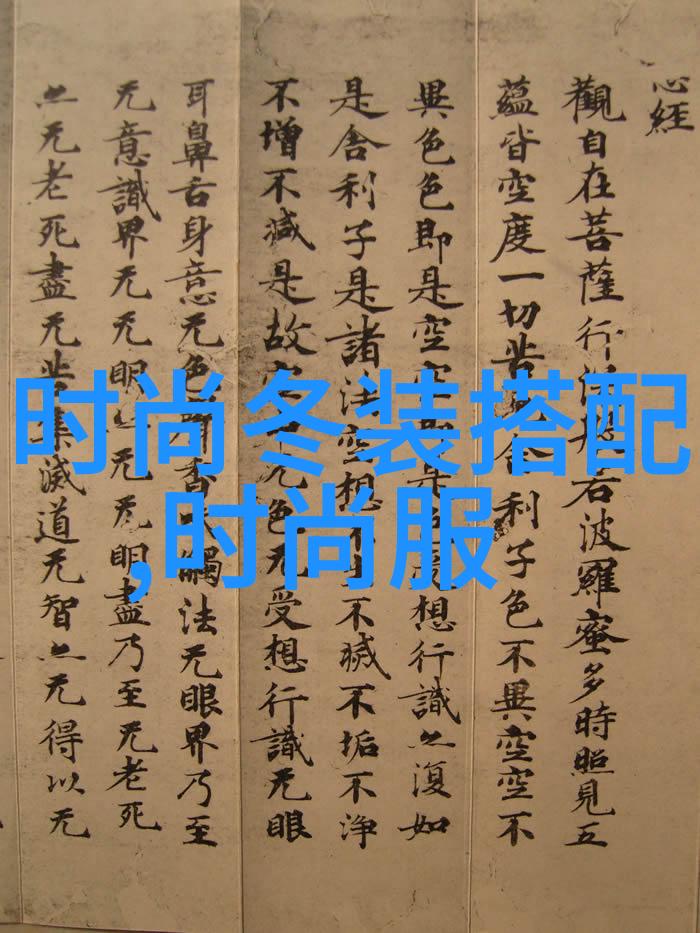 心經
觀自在菩薩行深般若波羅蜜多時照見五
蘊皆空度一切苦舍利子色不異空空不
異色色即是空空即是受想行識亦復如
是舍利子是諸法空想不不滅不垢不淨
不增不減是故空无色无受想行識无眼
耳鼻舌身意无色香觸法无眼界乃至
无意識界无无明亦无无明盡乃至无老死
亦无老死盡无苦集滅道无智亦无得以无
时尚冬装搭配
,时尚服